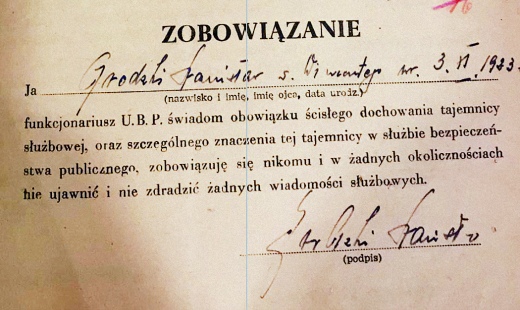 ZOBOWIĄZANIE
Ja Grodzki Stanisław s. Wincentego ur. 3.VI.1923.
(nazwisko i imię, imię ojca, data urodz.)
funkcjonariusz U.B.P. świadom obowiązku ścisłego dochowania tajemnicy
służbowej, oraz szczególnego znaczenia tej tajemnicy w służbie bezpieczeń-
stwa publicznego, zobowiązuję się nikomu i w żadnych okolicznościach
nie ujawnić i nie zdradzić żadnych wiadomości służbowych.
(podpis)